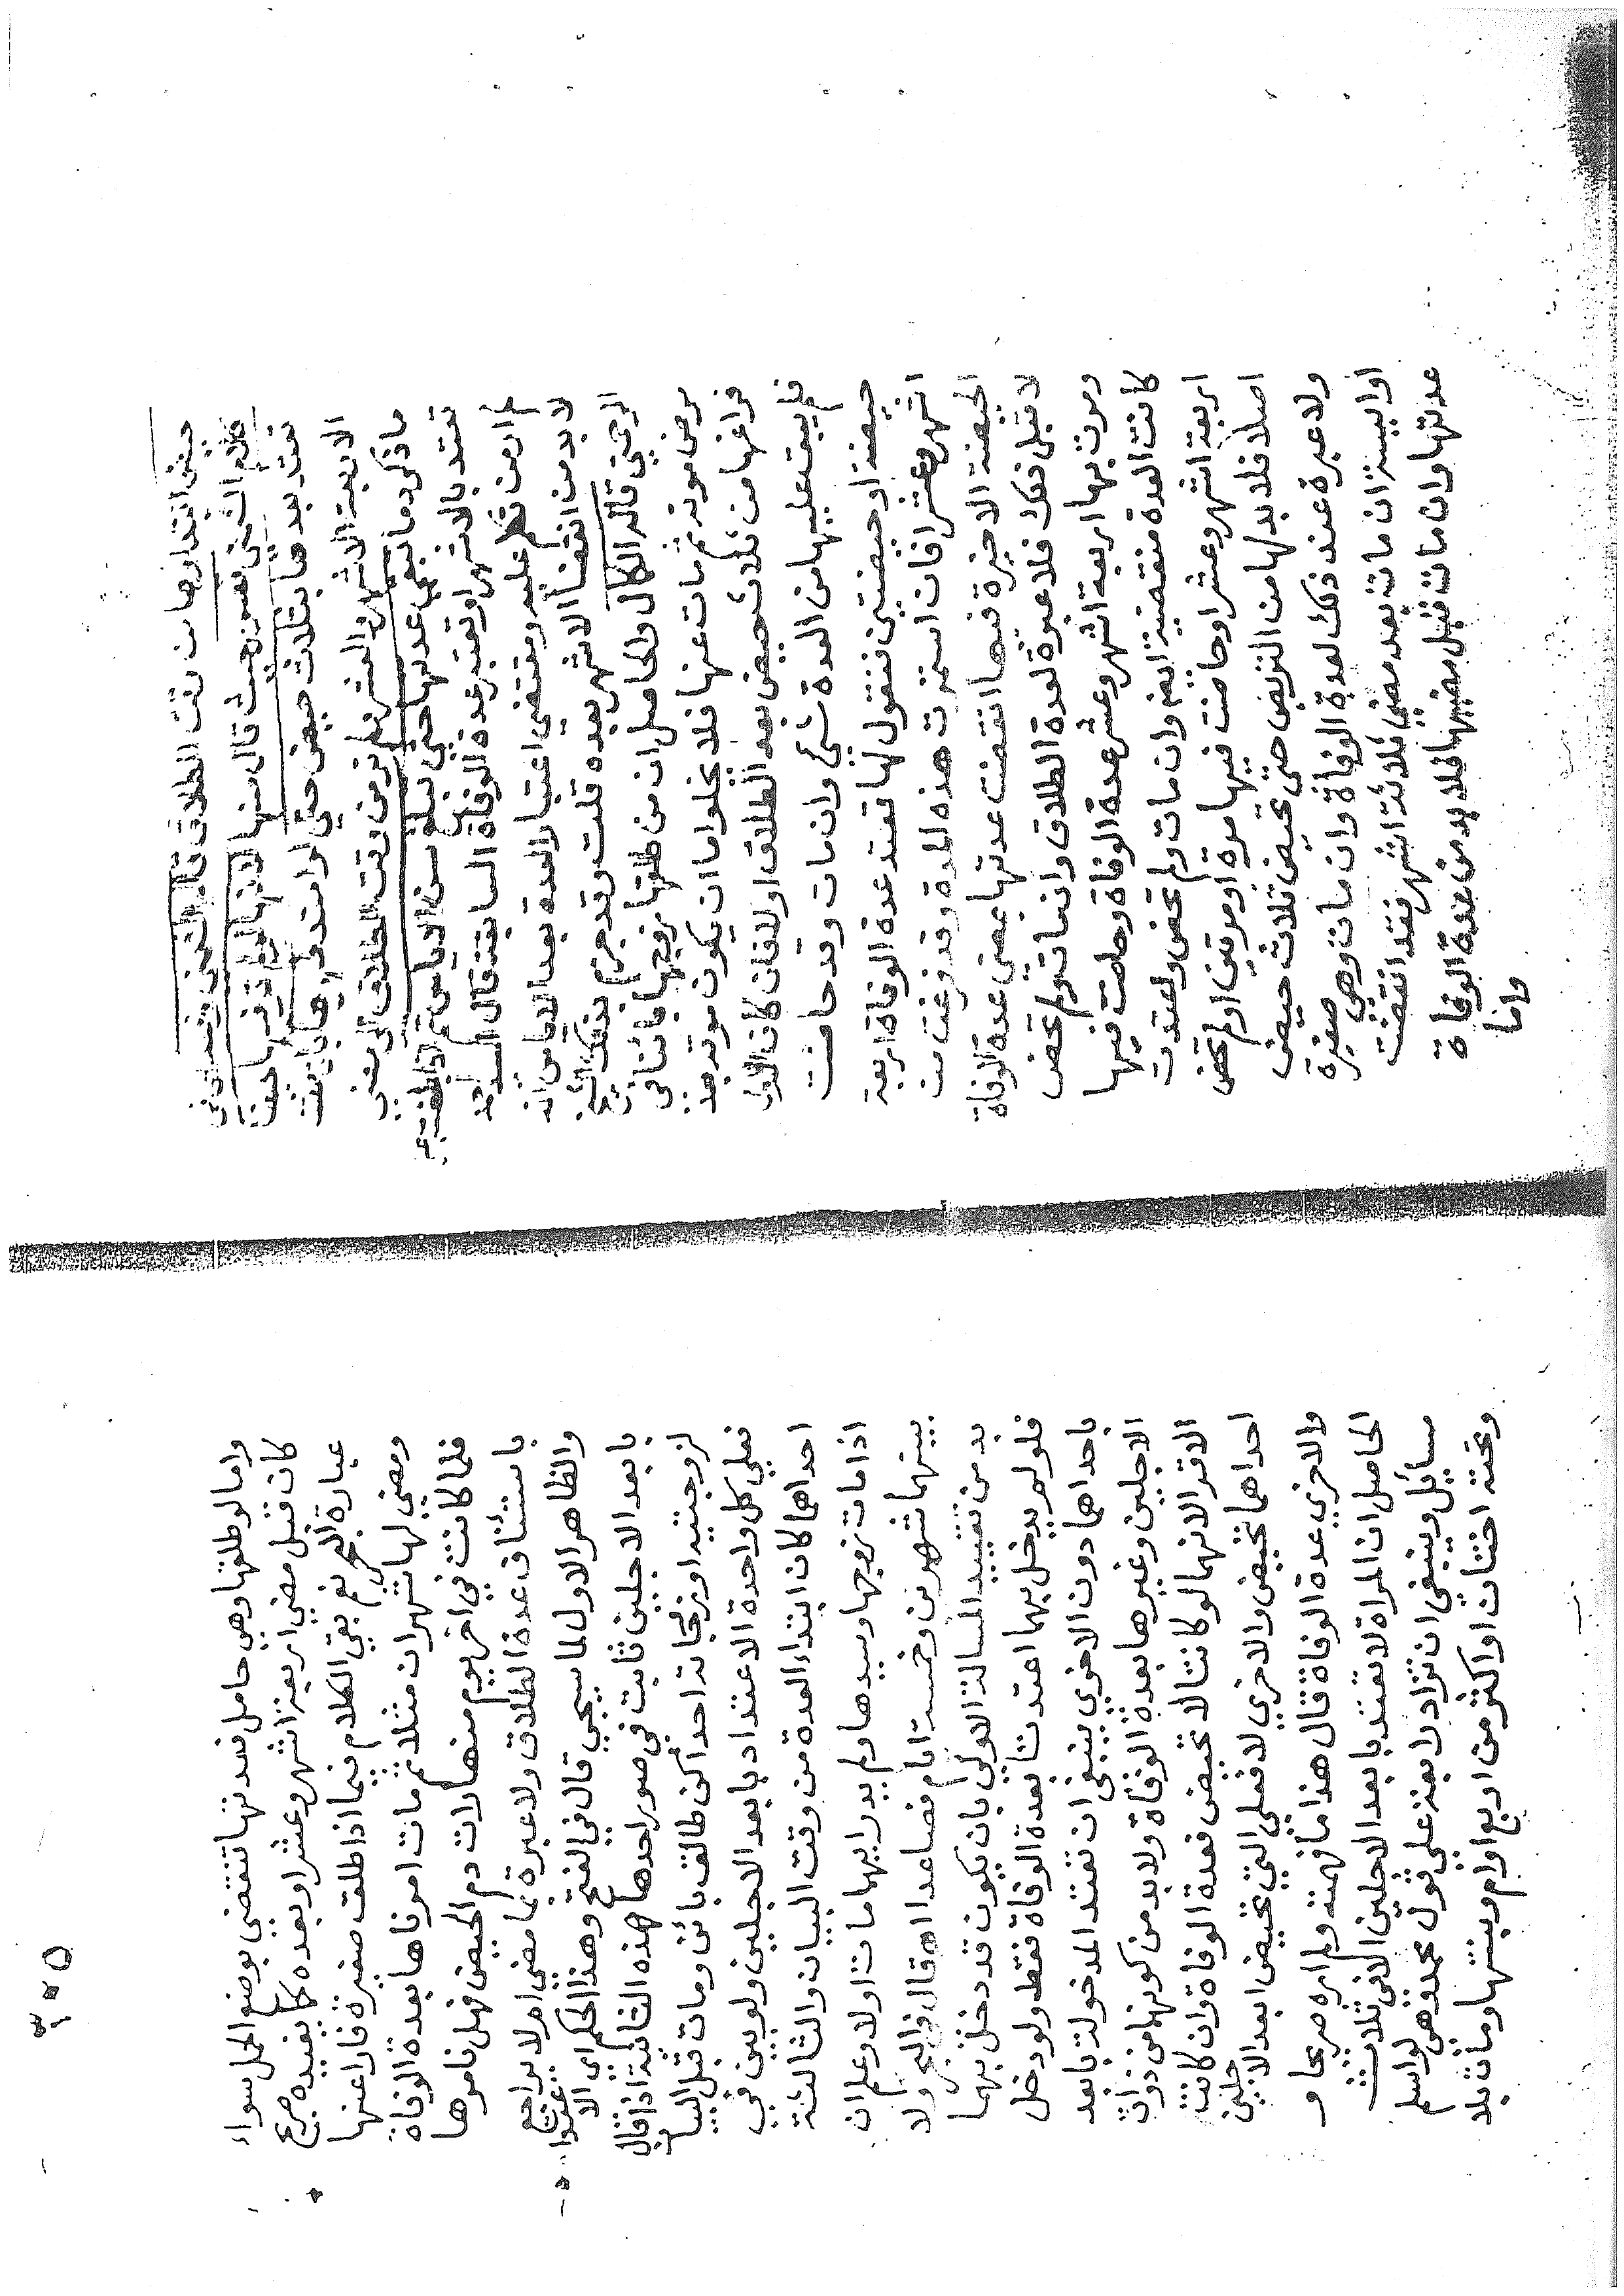 حيض ابتداؤها من وقت الطلاق قال الشمني وقصد اى فى
كلام الشمني قصور حيث قال منها لانها لو لم تر فيها حيضا
تعتد بعدها بثلاث حيض حتى لو امتد طهرها بقيت
الاربعة الاشهر والعشر فلم تر من وقت الطلاق الى مضي
ما ذكر دما تبقي عدتها حتى تبلغ سن الاياس ثم اذا بلغته
تعتد بالاشهر او تعتبر عدة الوفاة السابقة قال السيد احمد
لم ار من تكلم عليه ومقتضي اعتبار العدة بعد الاياس انه
لا بد من انقضا الاشهر بعده قلت وقد جزم بذلك الشيخ
الرحمتي قاله الكال والحاصل ان من طلقها زوجها بائنا في
مرض موته ثم مات عنها فلا يخلوا ما ان يكون موته بعد
فراغها من ثلاث حيض بعد الطلاق اولا فان كان الاول
فلم يبق عليها من العدة شي وان مات وقد حاضت
حيضة او حيضتين فنقول لها تعتد عدة الوفاة اربعة
اشهر وعشرا فان استمرت هذه المدة وقد فرغت من
الحيضة الاخيرة فيها انقضت عدتها بمضي عدة الوفاة
لا قبل ذلك فلا عبرة لعدة الطلاق وان مات ولم تحض
ومرت بها اربعة اشهر وعشر عدة الوفاة وحاضت فيها
كانت العدة منقضية ايضا وان مات ولم تحض ولعتدت
اربعة اشهر وعشرا وحاضت فيها مرة او مرتين او لم تحض
اصلا فلا بد لها من التربص حتى تحيض ثلاث حيض
ولا عبرة عند ذلك لعدة الوفاة وان مات وهي صغيرة
او ايسة ان مات بعد مضي ثلاثة اشهر فقد انقضت
عدتها وان مات قبل مضيها فلا بد من عدة الوفاة
واما
٢٠٥
واما لو طلقها وهي حامل فعدتها تنقضي بوضع الحمل سواء
كان قبل مضي اربعة اشهر وعشرا وبعده كما يفيده صريح
عبارة البحر نعم بقي الكلام فيما اذا طلق صغيرة فارا عنها
ومضي لها شهران مثلا ثم مات امرناها بعدة الوفاة
فلما كانت في اخر يوم منها رات دم الحيض فهل نامرها
باستئناف عدة الطلاق ولا عبرة بما مضى ام لا يراجع
والظاهر الاول لما سيجي قال في الفتح وهذا الحكم اى الاعتداد
بابعد الاجلين ثابت في صور احدها هذه الثانية اذا قال
لزوجتيه او زوجاته احداكن طالق بائن ومات قبل البيان
فعلي كل واحدة الاعتداد بابعد الاجلين ولو بين في
احداهما كان ابتداء العدة من وقت البيان والثالثة
اذا مات زوجها وسيدها ولم يدر ايهما مات اولا وعلم ان
بينهما شهرين وخمسة ايام فصاعدا اه قال في البحر ولا
بد من تقييد المسالة الاولى بان يكون قد دخل بهما
فلو لم يدخل بهما اعتدتا بعدة الوفاة فقط ولو دخل
باحداهما دون الاخرى ينبغي ان تعتد المدخولة بابعد
الاجلين وغيرها بعدة الوفاة ولا بد من كونهما من ذوات
الاقراء لانهما لو كانتا لا تحيض فعدة الوفاة وان كانت
احداهما تحيض والاخرى لا فعلي التي تحيض ابعد الاجلين
والاخرى عدة الوفاة قال هذا ما فهمته ولم اره صريحا و
الحاصل ان المراة لا تعتد بابعد الاجلين الا في ثلاث
مسائل وينبغي ان تزاد رابعة علي قول محمد وهي لو اسلم
وتحته اختان او اكثر من اربع او ام وبنتها ومات بلا